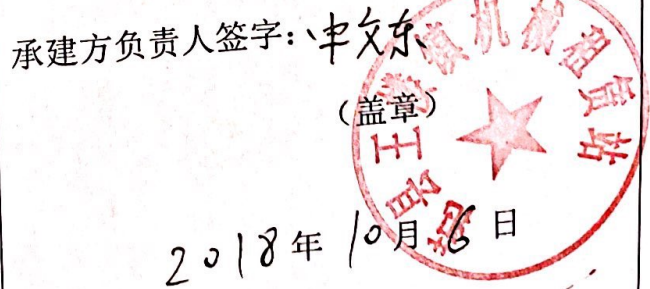 承建方负责人签字：申文东
（盖章）
机械租赁站
2018年10月6日